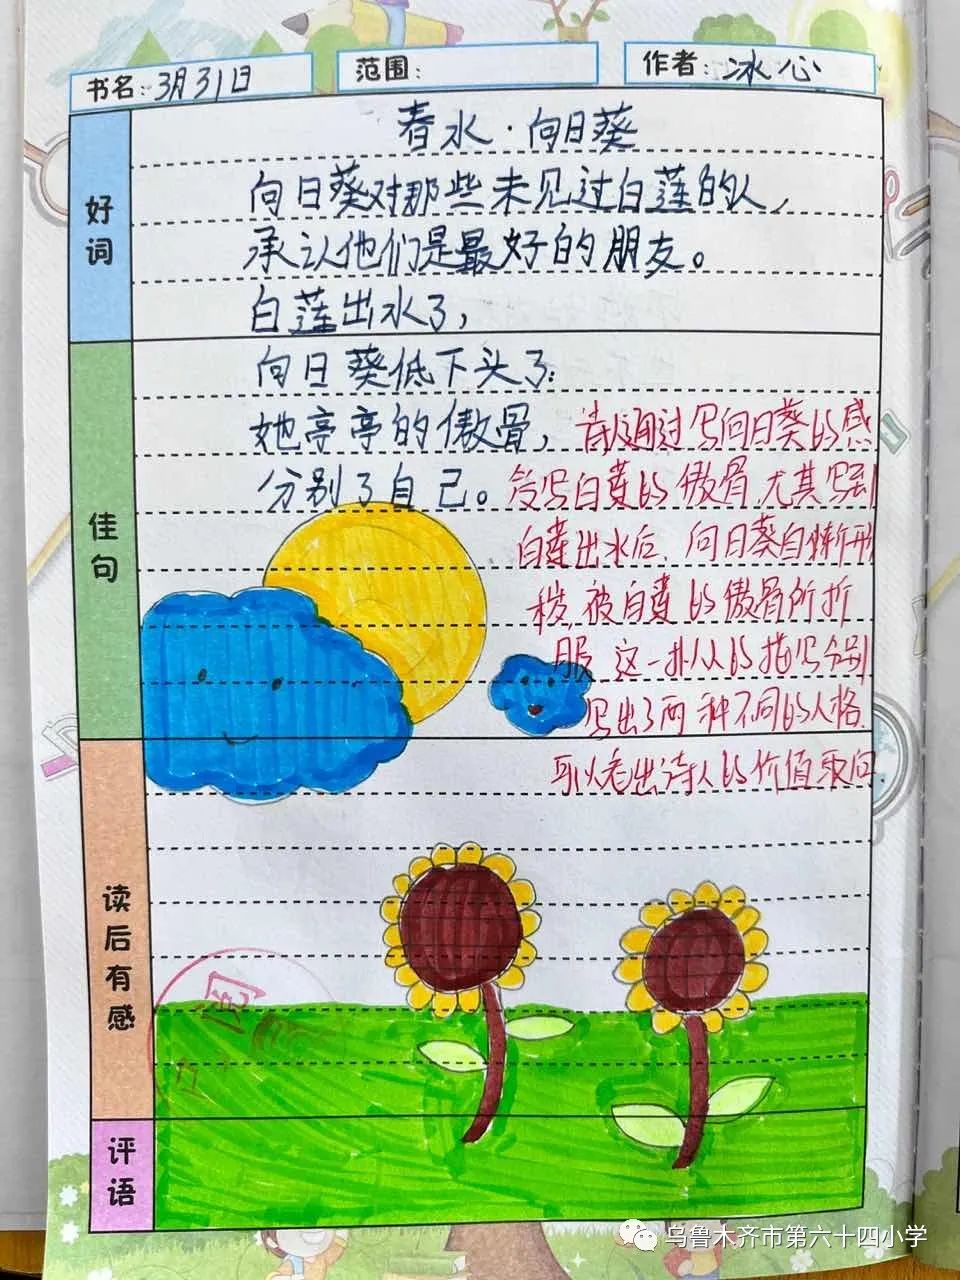 书名：3月31日
范围：
作者：冰心
春水·向日葵
好词
向日葵对那些未见过白莲的人，
承认他们是最好的朋友。
白莲出水了，
佳句
向日葵低下头了：
她亭亭的傲骨，
分别了自己。
诗人通过写向日葵的感
写白莲的傲骨.尤其写到
白莲出水后.向日葵自惭形
秽,被白莲的傲骨所折
服.这一拟人的描写分别
写出了两种不同的人格.
可以看出诗人的价值取向.
读后有感
评语
乌鲁木齐市第六十四小学